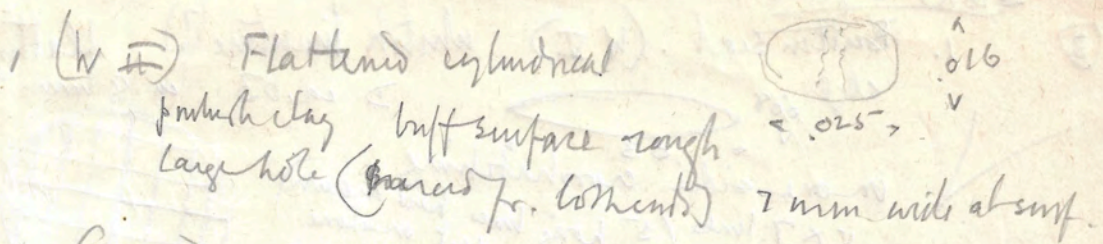 (W II) Flattened cylindrical .016
pinkish clay buff surface rough < .025 >
large hole (bored fr. both ends) 7 mm wide at surf.